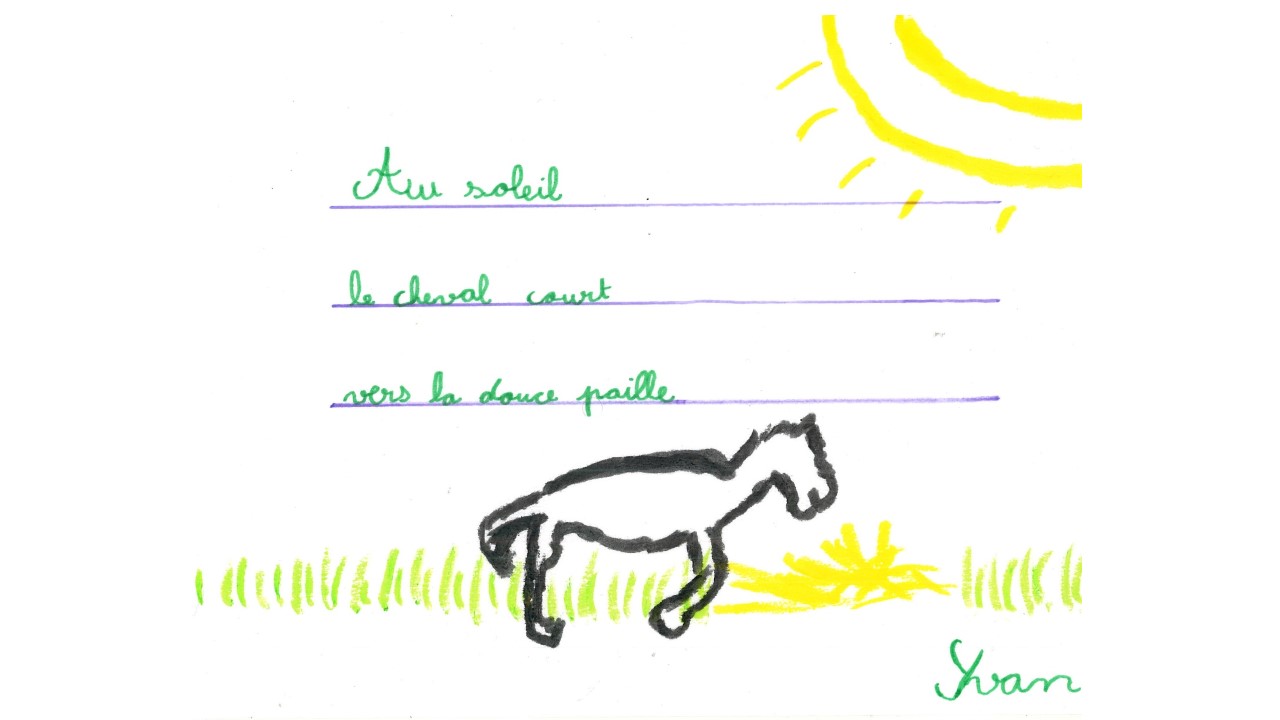 Au soleil
le cheval court
vers la douce paille
Yvan